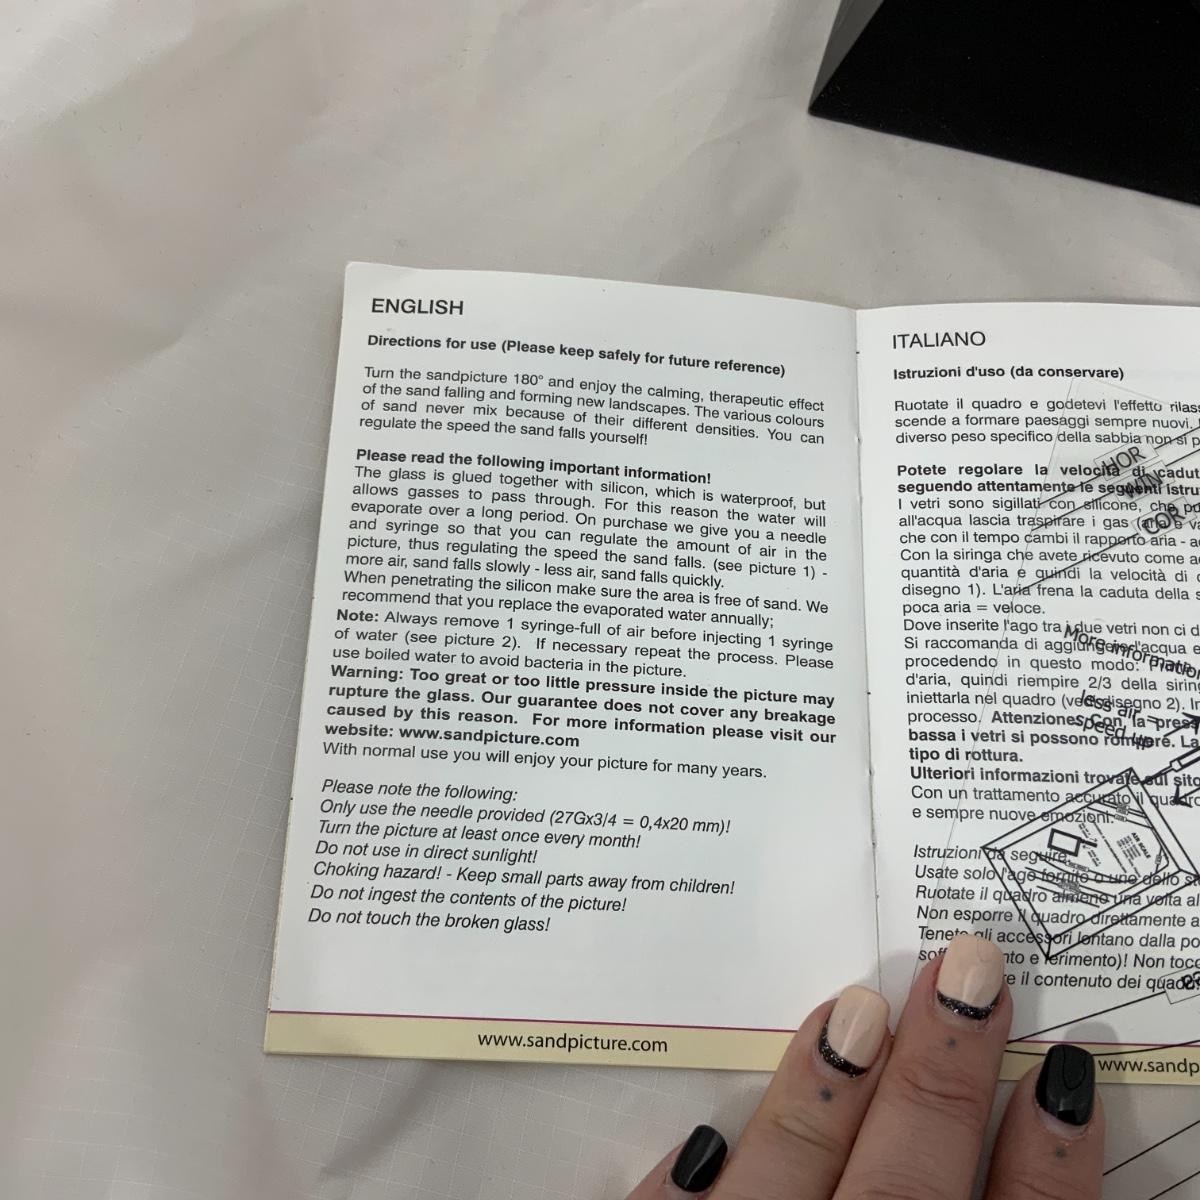 ENGLISH
Directions for use (Please keep safely for future reference)
Turn the sandpicture 180° and enjoy the calming, therapeutic effect
of the sand falling and forming new landscapes. The various colours
of sand never mix because of their different densities. You can
regulate the speed the sand falls yourself!
Please read the following important information!
The glass is glued together with silicon, which is waterproof, but
allows gasses to pass through. For this reason the water will
evaporate over a long period. On purchase we give you a needle
and syringe so that you can regulate the amount of air in the
picture, thus regulating the speed the sand falls. (see picture 1) -
more air, sand falls slowly - less air, sand falls quickly.
When penetrating the silicon make sure the area is free of sand. We
recommend that you replace the evaporated water annually;
Note: Always remove 1 syringe-full of air before injecting 1 syringe
of water (see picture 2). If necessary repeat the process. Please
use boiled water to avoid bacteria in the picture.
Warning: Too great or too little pressure inside the picture may
rupture the glass. Our guarantee does not cover any breakage
caused by this reason. For more information please visit our
website: www.sandpicture.com
With normal use you will enjoy your picture for many years.
Please note the following:
Only use the needle provided (27Gx3/4 = 0,4x20 mm)!
Turn the picture at least once every month!
Do not use in direct sunlight!
Choking hazard! - Keep small parts away from children!
Do not ingest the contents of the picture!
Do not touch the broken glass!
www.sandpicture.com
ITALIANO
Istruzioni d'uso (da conservare)
Ruotate il quadro e godetevi l'effetto
scende a formare paesaggi sempre nuovi.
diverso peso specifico della sabbia non si
Potete regolare la velocità di
seguendo attentamente le seguenti
I vetri sono sigillati con silicone, che
all'acqua lascia traspirare i gas
che con il tempo cambi il rapporto aria -
Con la siringa che avete ricevuto come
quantità d'aria e quindi la velocità di
disegno 1). L'aria frena la caduta della
poca aria = veloce.
Dove inserite l'ago tra i due vetri non ci
Si raccomanda di aggiungere l'acqua
procedendo in questo modo:
d'aria, quindi riempire 2/3 della
iniettarla nel quadro (vedi disegno 2).
processo. Attenzione: Con la
bassa i vetri si possono rompere. La
tipo di rottura.
Ulteriori informazioni trovate sul
Con un trattamento accurato il
e sempre nuove emozioni.
Istruzioni da seguire:
Usate solo l'ago fornito o uno dello
Ruotate il quadro almeno una volta
Non esporre il quadro direttamente
Tenete gli accessori lontano dalla
e ferimento)! Non
il contenuto dei
More information
less air =
speed up
AIR SCALE